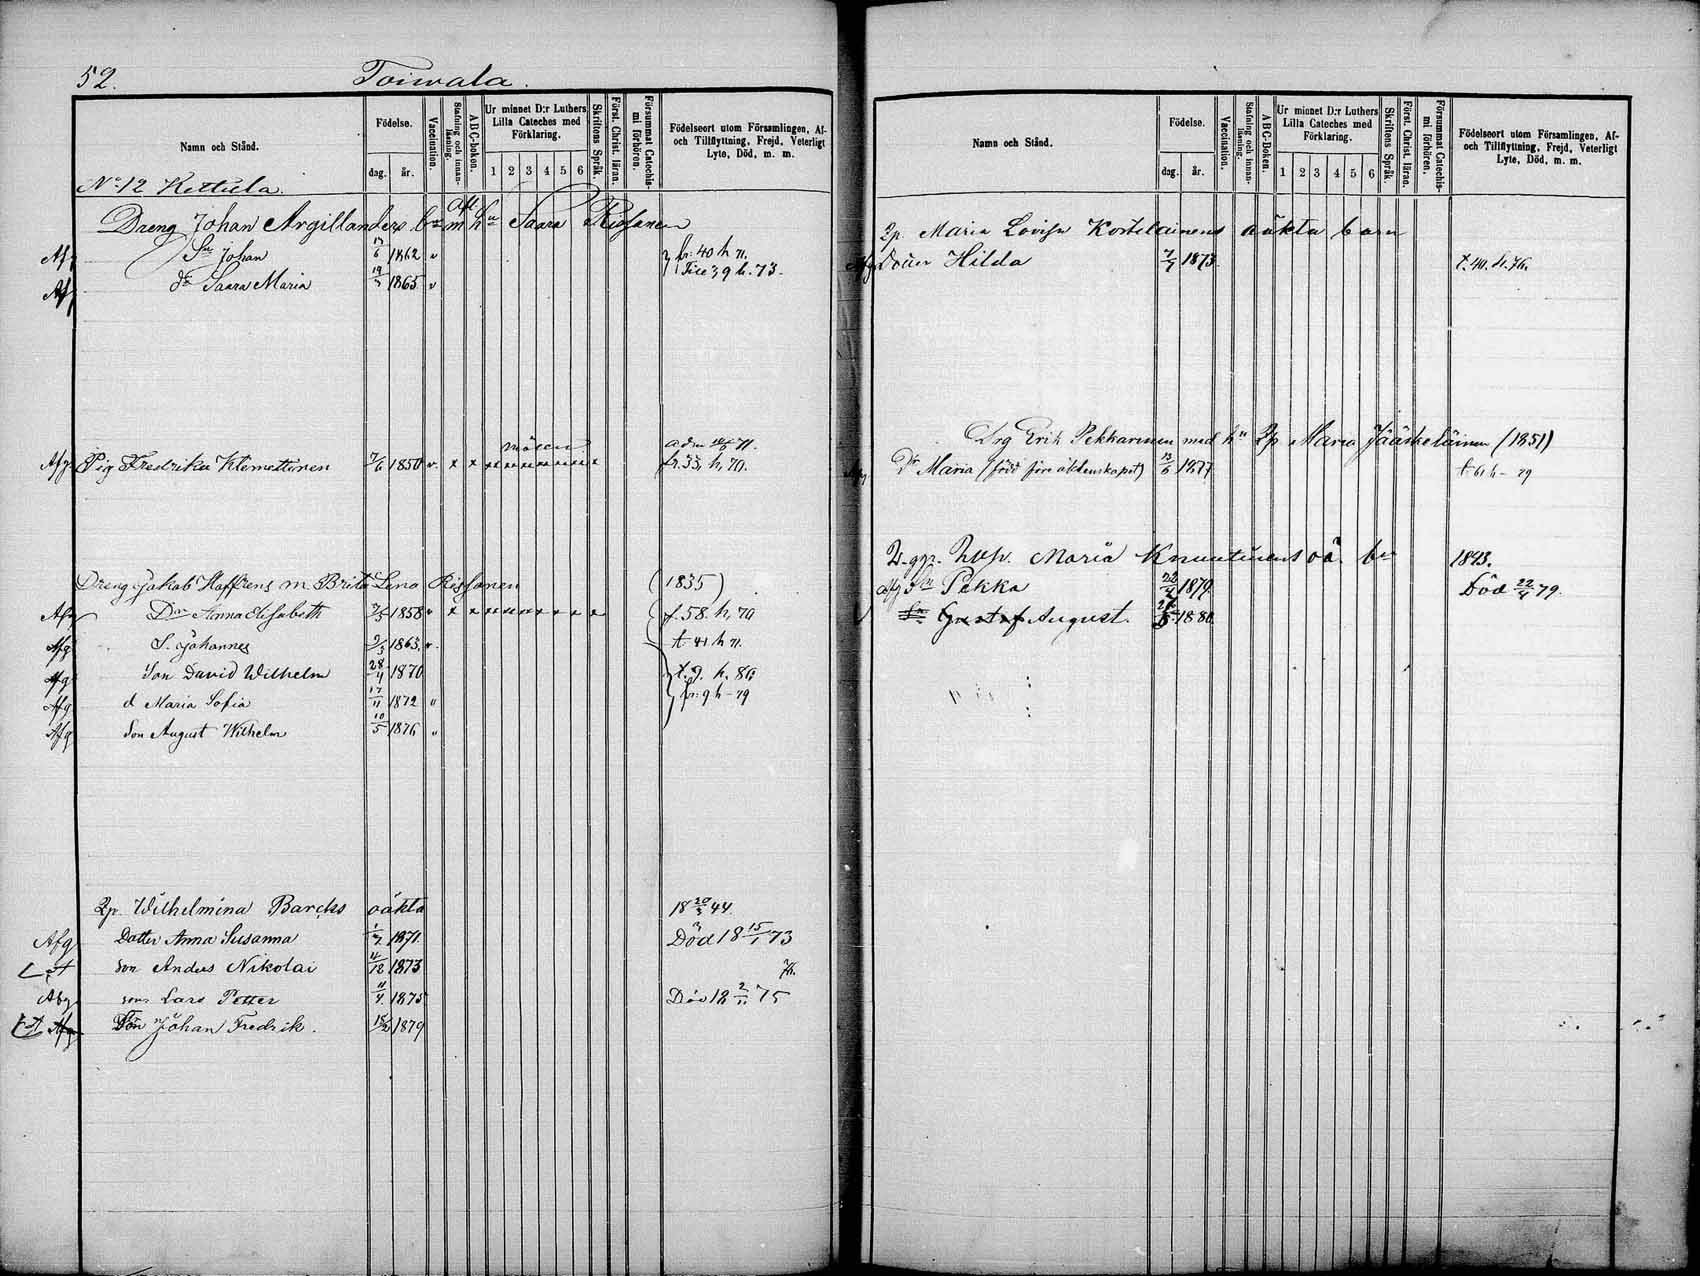 52. Toiwala.
Namn och Stånd.
Födelse.
dag. år.
Vaccination.
Stafning och innan-läsning.
A B C-boken.
Ur minnet D:r Luthers Lilla Cateches med Förklaring.
1 2 3 4 5 6
Skriftens Språk.
Först. Christ. läran.
Försummat Catechis-mi förhören.
Födelseort utom Församlingen, Af- och Tillflyttning, Frejd, Veterligt Lyte, Död, m. m.
No 12 Kettula.
Dreng Johan Argillanders bn m hu Saara Rissanen
Afg Sn Johan 1862 " fr. 40 h 71.
Af dr Saara Maria 1865 " 39 h. 73.
Afg Pig Fredrika Klemettinen 7/6 1850 v. x x x x x x x x x fr. 33. h. 70.
Dreng Jakob Haffrens m Brita Lena Rissanen (1835)
Afg Dr Anna Elisabeth 1858 " x x x x x x x x x f. 58. h. 70
Afg S. Johannes 9/5 1863. v. t 41 h 71.
Afg Son David Wilhelm 28/4 1870 t. 9. h. 80;
Afg d Maria Sofia 17/11 1872 " fr. 9 h - 79
Afg Son August Wilhelm 10/5 1876 "
Qp. Wilhelmina Barcks oäkta 18 20/3 44.
Afg Dotter Anna Susanna 1/7 1871. Död 18 15/1 73
son Anders Nikolai 4/12 1873
Afg son Lars Petter 11/4 1875 Död 18 2/11 75
Afg Son Johan Fredrik. 1879
Namn och Stånd.
Födelse.
dag. år.
Vaccination.
Stafning och innan-läsning.
A B C-boken.
Ur minnet D:r Luthers Lilla Cateches med Förklaring.
1 2 3 4 5 6
Skriftens Språk.
Först. Christ. läran.
Försummat Catechis-mi förhören.
Födelseort utom Församlingen, Af- och Tillflyttning, Frejd, Veterligt Lyte, Död, m. m.
Qp. Maria Lovisa Kortelainens oäkta barn
Afg Dotter Hilda 7/7 1873 t. 40. h. 76.
Drg Erik Pekkarinen med hu Qp Maria Jääskeläinen (1851)
Afg Dr Maria (född före äktenskapet) 1877 t 61 h - 79
Maria Knuutinens oä. bn 1843.
afg Sn Pekka 22/4 1879. Död 22/4 79.
Sn Gustaf August. 1880.